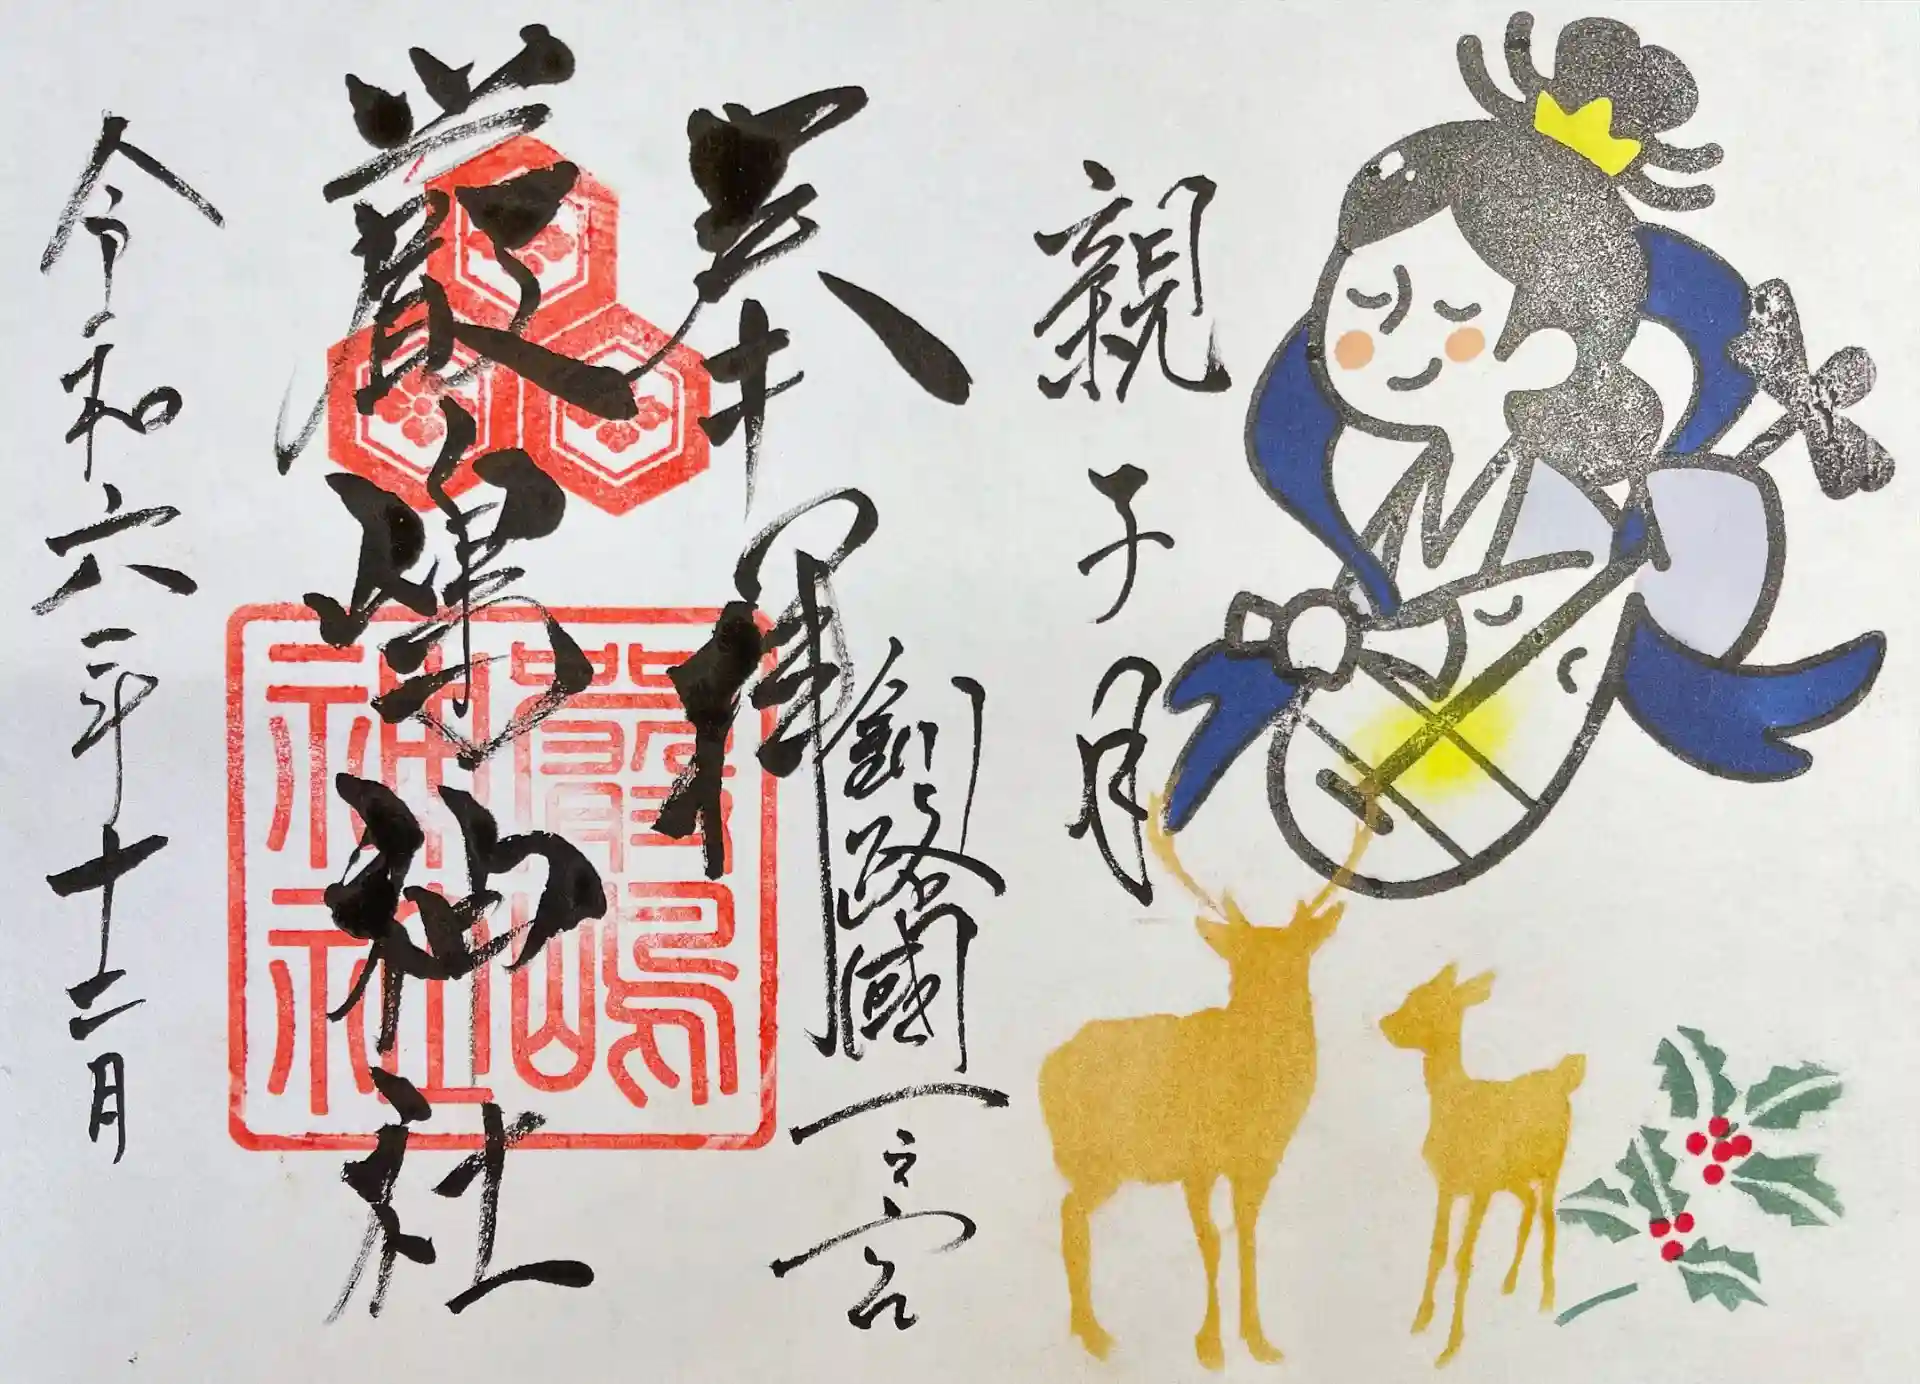 親子月
奉拝
釧路國一之宮
厳島神社
嚴嶋神社
令和六年十二月